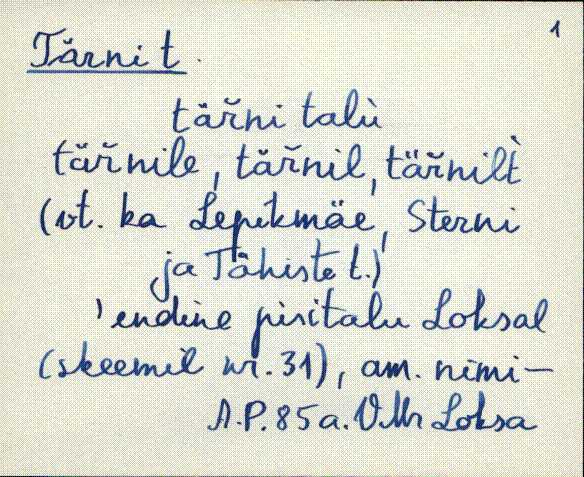 1
Tärni t.
tär̆ni talù
tär̆nile, tär̆nil, tär̆nilt̀
(vt. ka Lepikmäe, Sterni
ja Tähiste t.)
'endine piritalu Loksal
(skeemil nr. 31), am. nimi –
A.P. 85 a. VMr Loksa